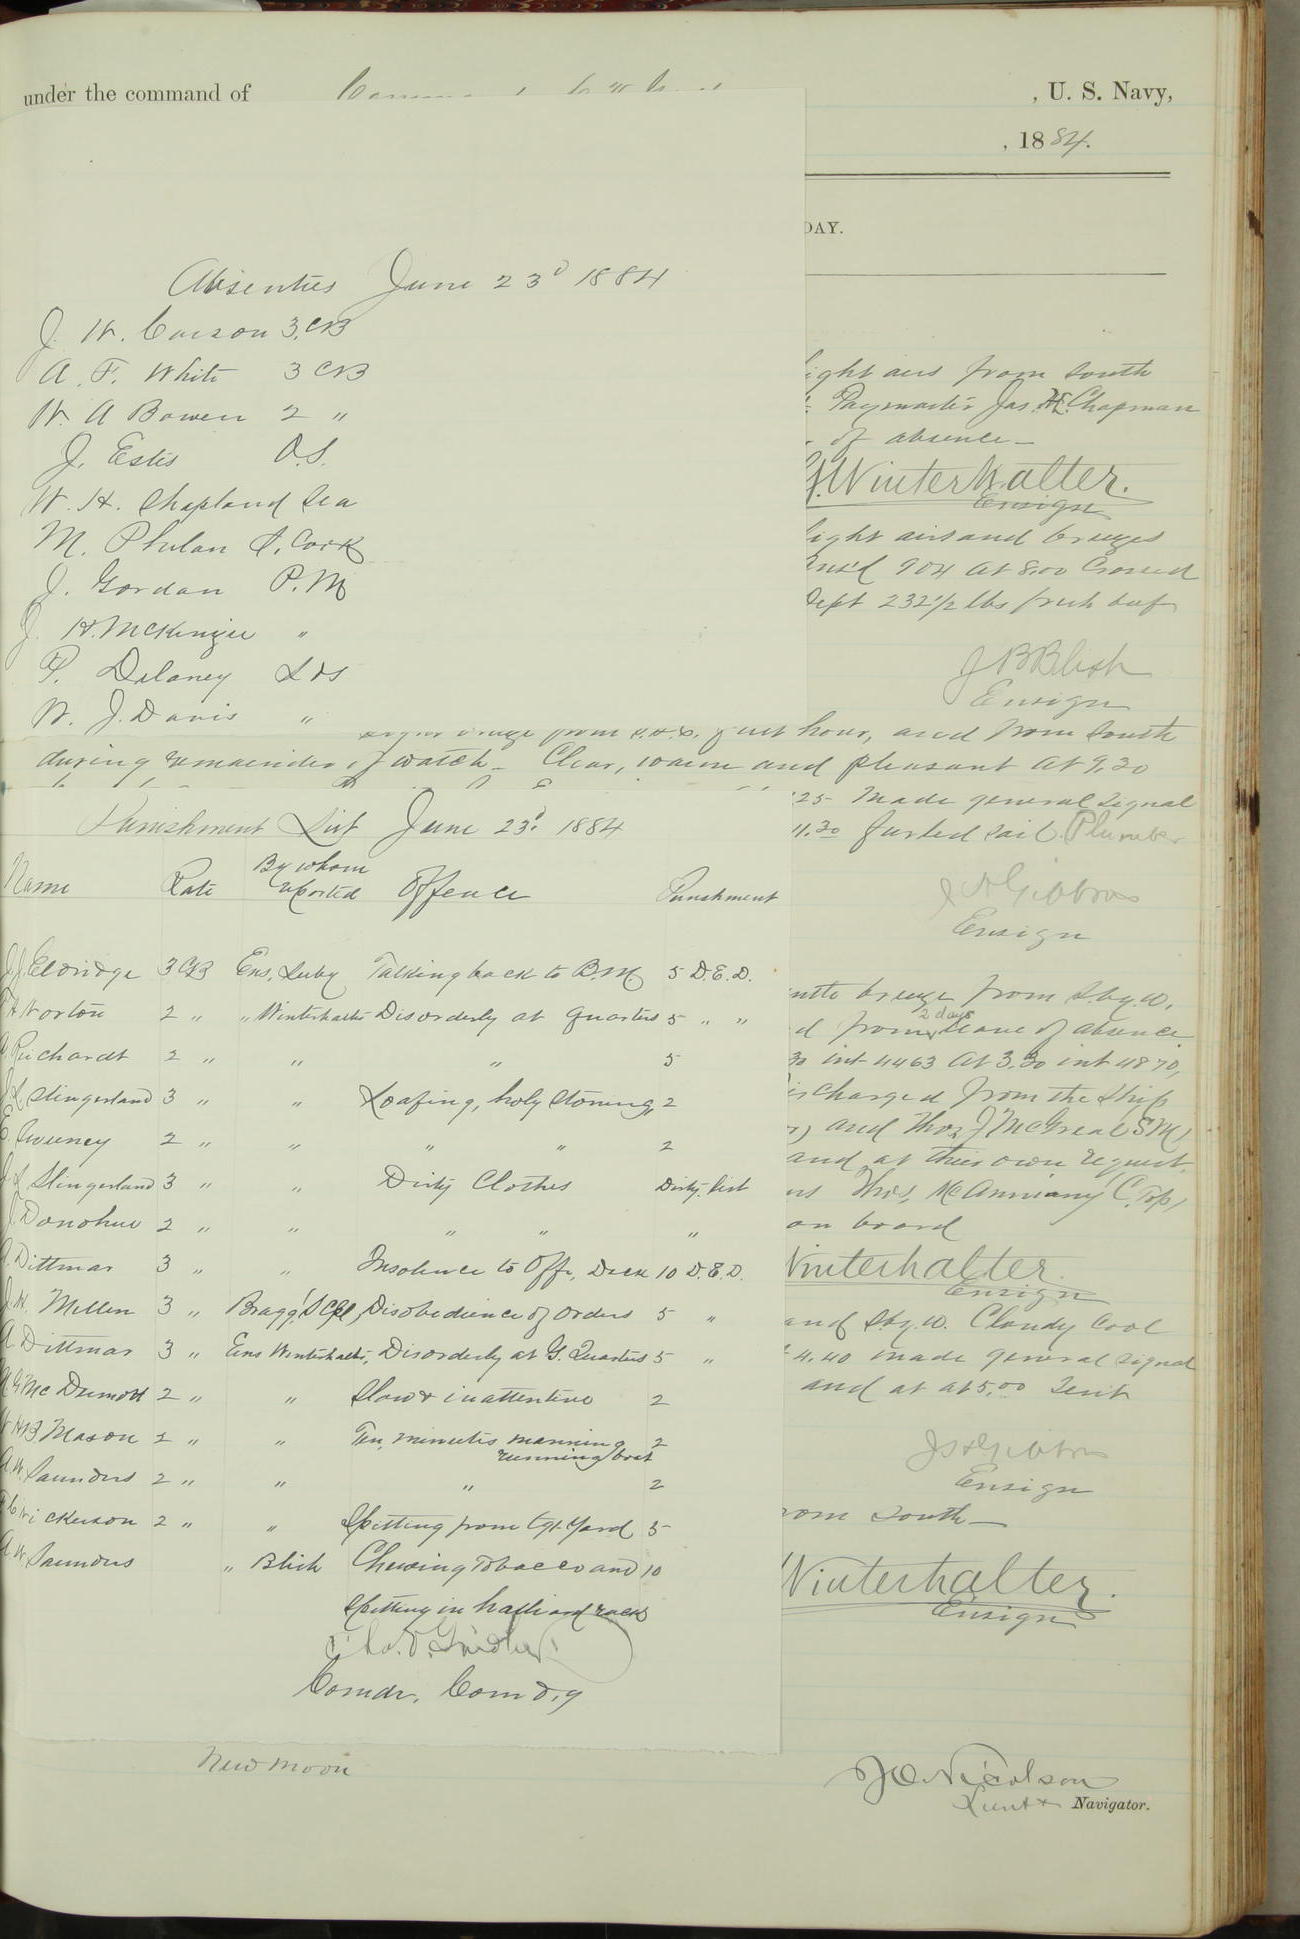 under the command of
, U. S. Navy,
, 1884.
DAY.
Absenties June 23d 1884
J. W. Carson 3. CB
A. F. White 3 CB
W. A Bowen 2 "
J. Estis O.S.
W. H. Chapland Sea
M. Phelan S. Cook
J. Gordon P. M
J. H. McKenzie "
P. Delaney Lds
W. J. Davis "
light airs from South
Paymaster Jas. H. Chapman
of absence —
Winterhalter.
Ensign
light airs and breezes
904 at 8.00 Crossed
Dept 232 1/2 lbs fresh beef
J B Blish
Ensign
hour, and from South
during remainder of watch — Clear, warm and pleasant At 9.30
25 Made general signal
11.30 furled sail.
Ensign
Punishment List June 23d. 1884
Name Rate By whom reported Offence Punishment
Eldridge 3 CB Ens. Luby Talking back to B.M 5 D.E.D.
Norton 2 " " Winterhalter Disorderly at Quarters 5 " "
Richardt 2 " " " 5
Slingerland 3 " " Loafing, holy stoning, 2
Sweeney 2 " " " " 2
Slingerland 3 " " Dirty Clothes Dirty list
Donohue 2 " " " " "
Dittmar 3 " " Insolence to Offr, Deck 10 D.E.D.
Millen 3 " Bragg, Disobedience of orders 5 "
A Dittmar 3 " Ens Winterhalter, Disorderly at G. Quarters 5 "
McDermott 2 " " Slow & inattentive 2
Mason 2 " " Ten, minutes manning running boat 2
A W. Saunders 2 " " " 2
Nickerson 2 " " Spitting from tgt. Yard 5
A W Saunders " Blish Chewing Tobacco and 10
Spitting in halliard racks
Chas. V. Gridley
Comdr, Comd,g
breeze from S. by W.
from 2 days leave of absence
int 4463 At 3.30 int 4870,
discharged from the Ship
and Thos J McGreal SM,
and at their own request.
Thos, McAnniany C. Top,
on board
Winterhalter
Ensign
and S. by. W. Cloudy Cool
4.40 made general signal
and at at 5.00 Sent
Ensign
from South —
Winterhalter.
Ensign
New moon
J O Nicolson
Lieut & Navigator.